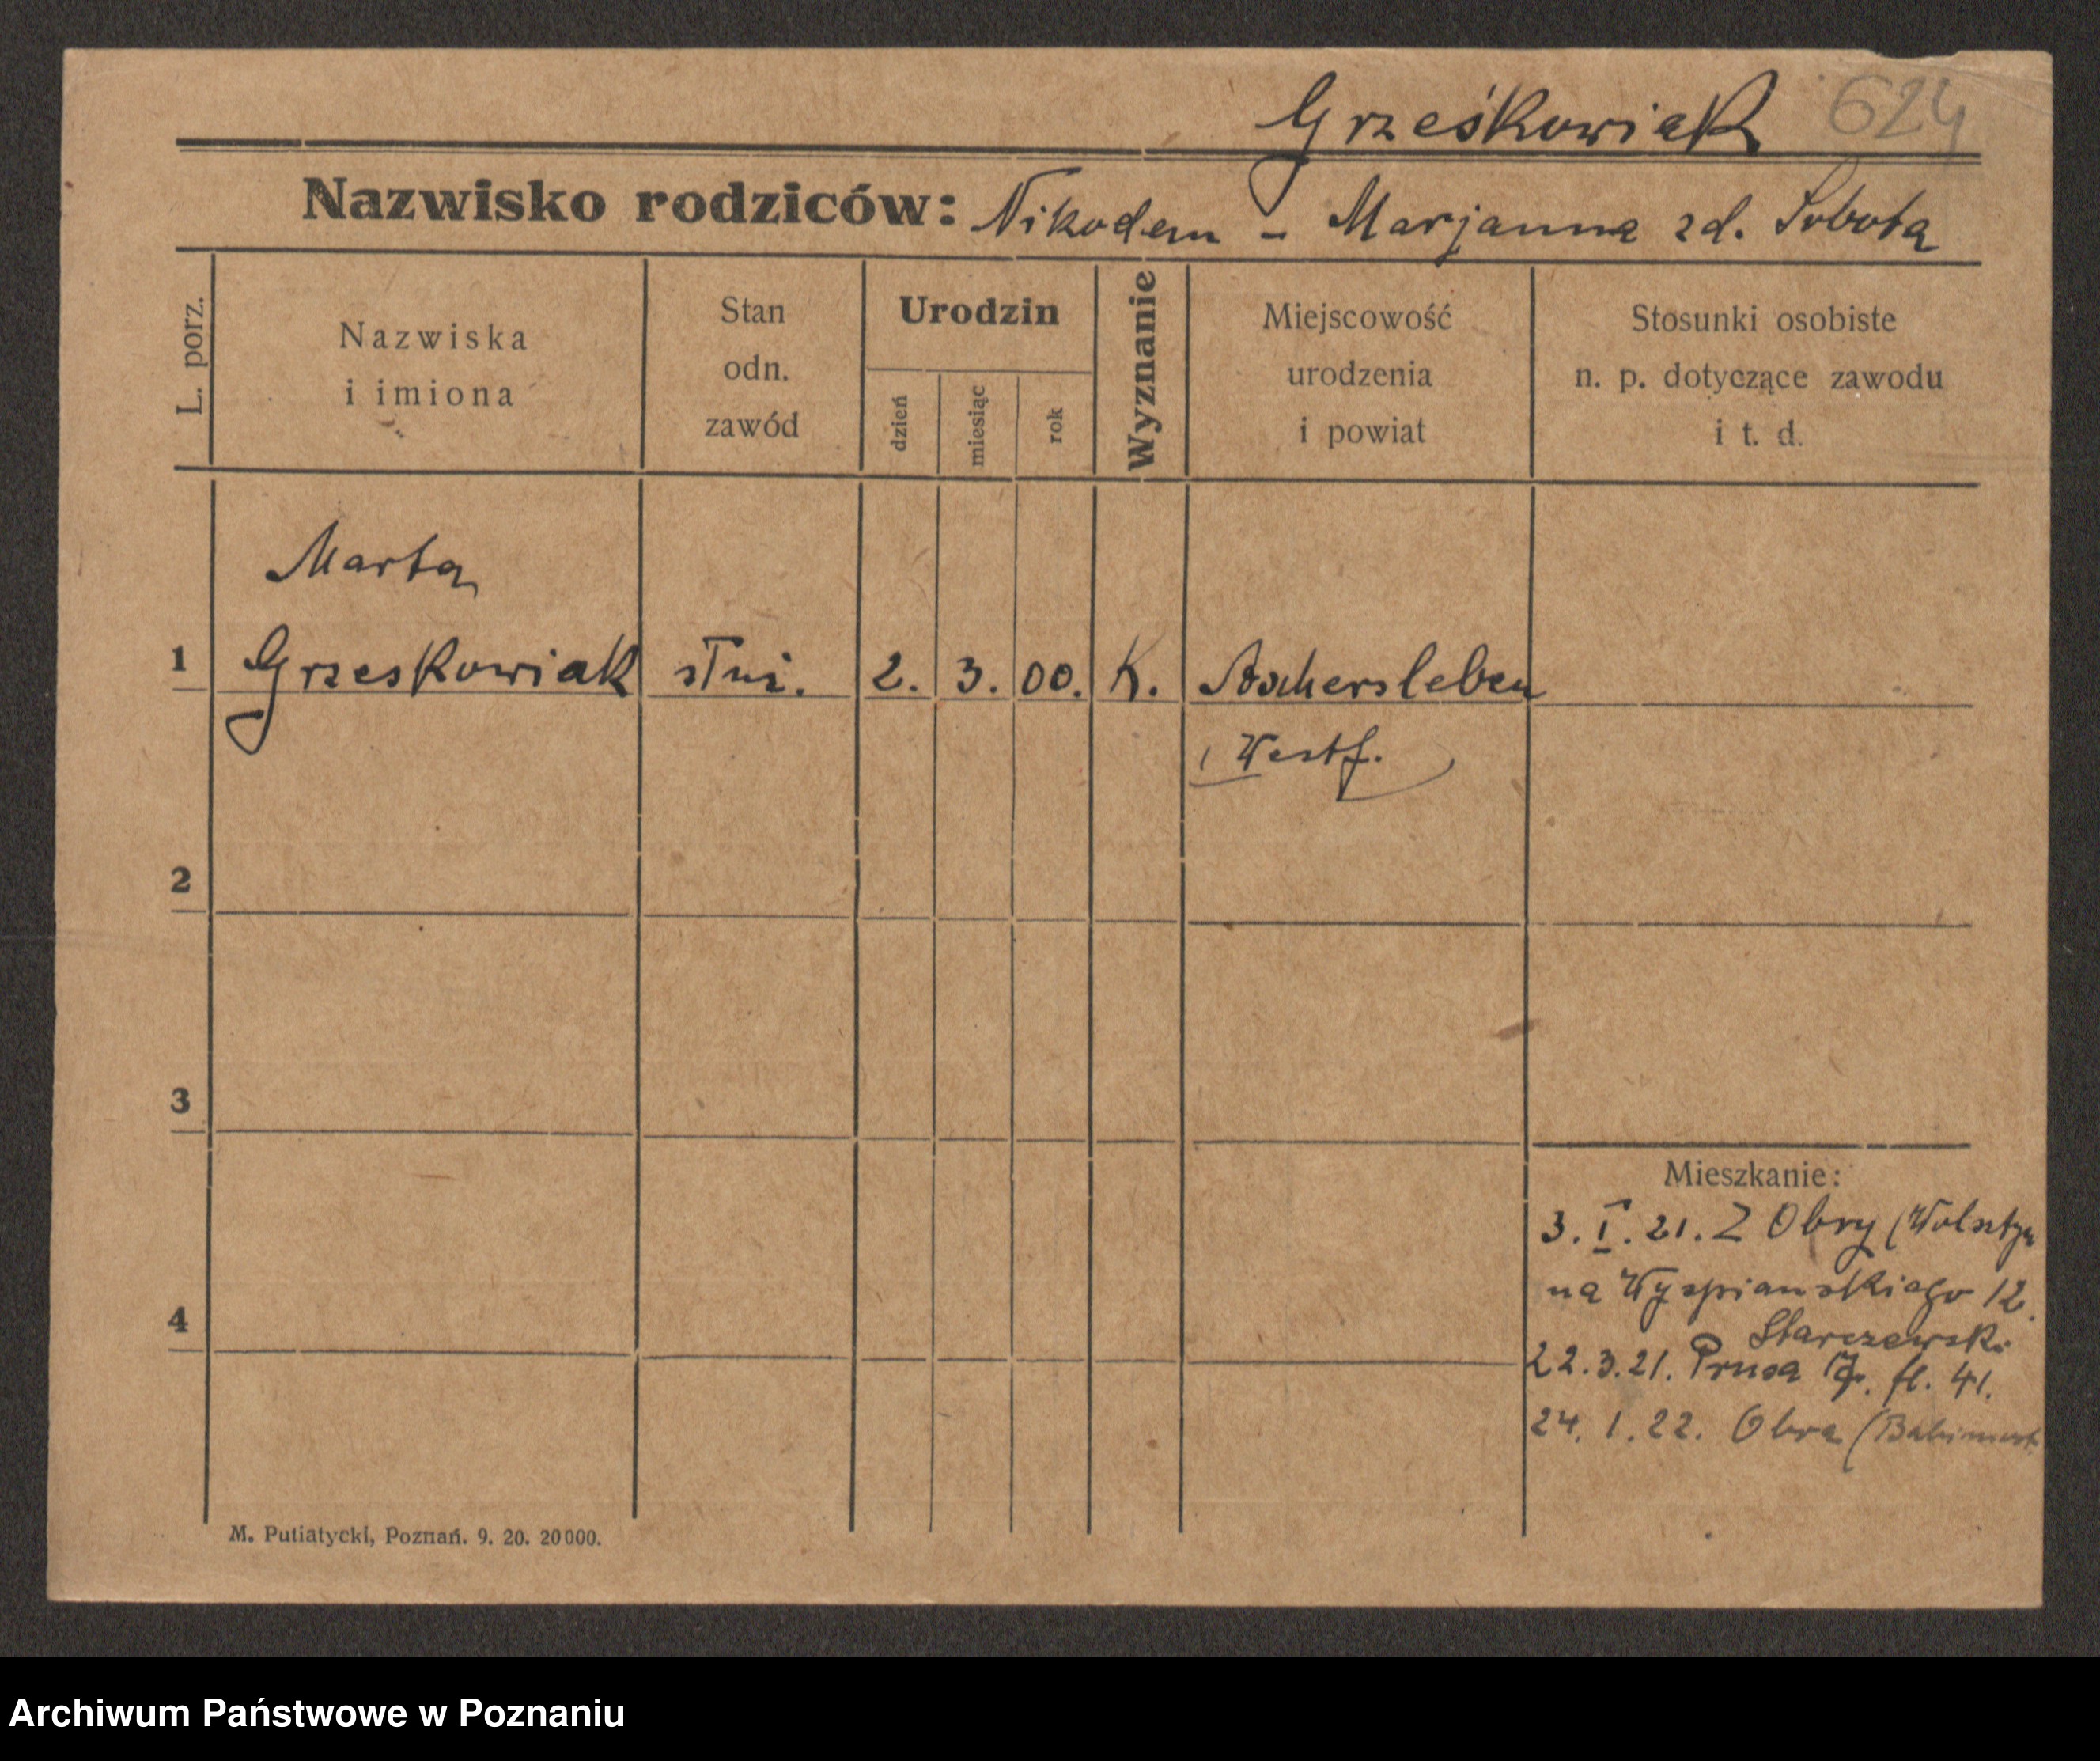 Grześkowiak 624
Nazwisko rodziców: Nikodem - Marjanna zd. Sobota
L. porz.
Nazwiska
i imiona
Stan
odn.
zawód
Urodzin
dzień
miesiąc
rok
Wyznanie
Miejscowość
urodzenia
i powiat
Stosunki osobiste
n. p. dotyczące zawodu
i t. d.
Marta
1 Grzeskowiak służ. 2. 3. 00. K. Aschersleben
(Westf.)
2
3
Mieszkanie:
3. I. 21. Z Obry (Wolsztyn
na Wyspianskiego 12.
4
Starczewski
22.3.21. Prusa 17. fl. 41.
24. 1. 22. Obra (Babimost
M. Putiatycki, Poznań. 9. 20. 20000.
Archiwum Państwowe w Poznaniu